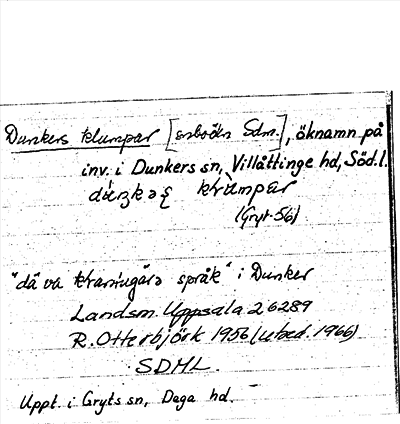 Dunkers klumpar [snboön Sdm.], öknamn på
inv. i Dunkers sn, Villåttinge hd, Söd.l.
(Gryt-56)
"dä va krånugärə språk" i Dunker
Landsm. Uppsala 26289
R. Otterbjörk 1956 (uted. 1966)
SDML.
Uppt. i Gryts sn, Daga hd.